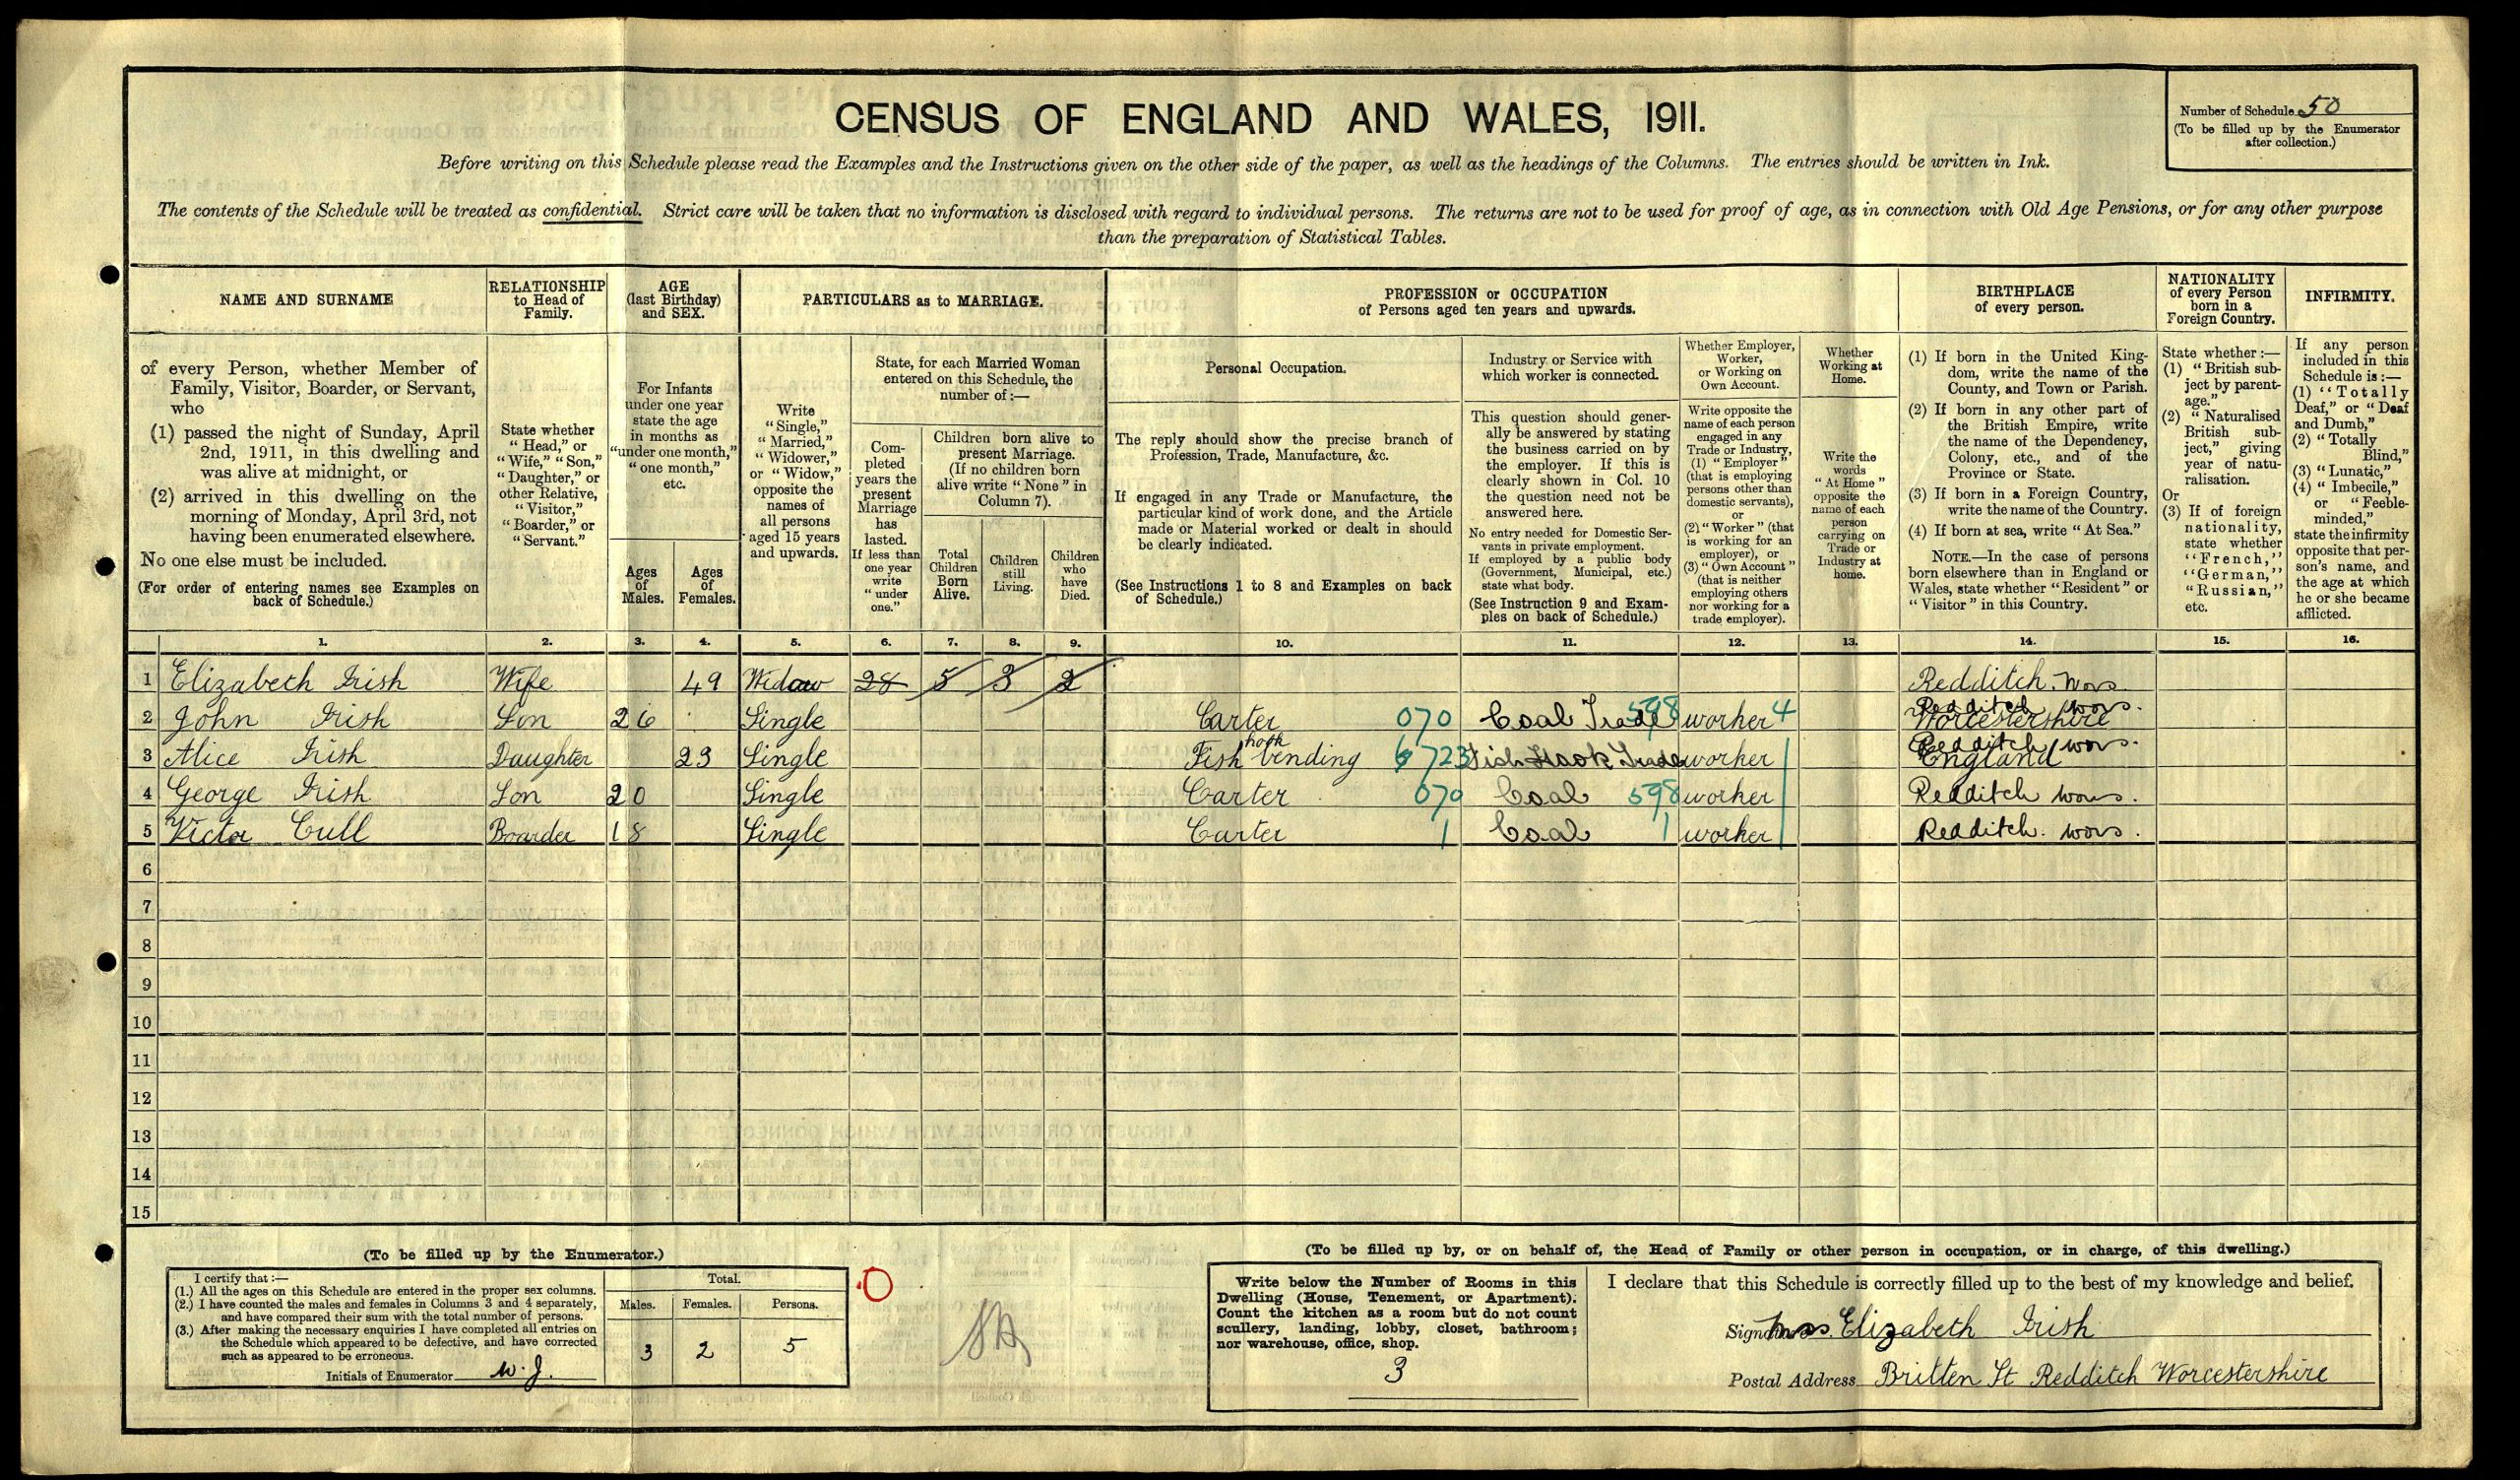 CENSUS OF ENGLAND AND WALES, 1911.
Number of Schedule 50
(To be filled up by the Enumerator
after collection.)
Before writing on this Schedule please read the Examples and the Instructions given on the other side of the paper, as well as the headings of the Columns. The entries should be written in Ink.
The contents of the Schedule will be treated as confidential. Strict care will be taken that no information is disclosed with regard to individual persons. The returns are not to be used for proof of age, as in connection with Old Age Pensions, or for any other purpose
than the preparation of Statistical Tables.
NAME AND SURNAME
of every Person, whether Member of
Family, Visitor, Boarder, or Servant,
who
(1) passed the night of Sunday, April
2nd, 1911, in this dwelling and
was alive at midnight, or
(2) arrived in this dwelling on the
morning of Monday, April 3rd, not
having been enumerated elsewhere.
No one else must be included.
(For order of entering names see Examples on
back of Schedule.)
RELATIONSHIP
to Head of
Family.
State whether
"Head," or
"Wife," "Son,"
"Daughter," or
other Relative,
"Visitor,"
"Boarder," or
"Servant."
AGE
(last Birthday)
and SEX.
For Infants
under one year
state the age
in months as
"under one month,"
"one month,"
etc.
Ages
of
Males.
Ages
of
Females.
PARTICULARS as to MARRIAGE.
Write
"Single,"
"Married,"
"Widower,"
or "Widow,"
opposite the
names of
all persons
aged 15 years
and upwards.
State, for each Married Woman
entered on this Schedule, the
number of :—
Com-
pleted
years the
present
Marriage
has
lasted.
If less than
one year
write
"under
one."
Children born alive to
present Marriage.
(If no children born
alive write "None" in
Column 7).
Total
Children
Born
Alive.
Children
still
Living.
Children
who
have
Died.
PROFESSION or OCCUPATION
of Persons aged ten years and upwards.
Personal Occupation.
The reply should show the precise branch of
Profession, Trade, Manufacture, &c.
If engaged in any Trade or Manufacture, the
particular kind of work done, and the Article
made or Material worked or dealt in should
be clearly indicated.
(See Instructions 1 to 8 and Examples on back
of Schedule.)
Industry or Service with
which worker is connected.
This question should gener-
ally be answered by stating
the business carried on by
the employer. If this is
clearly shown in Col. 10
the question need not be
answered here.
No entry needed for Domestic Ser-
vants in private employment.
If employed by a public body
(Government, Municipal, etc.)
state what body.
(See Instruction 9 and Exam-
ples on back of Schedule.)
Whether Employer,
Worker,
or Working on
Own Account.
Write opposite the
name of each person
engaged in any
Trade or Industry,
(1) "Employer"
(that is employing
persons other than
domestic servants),
or
(2) "Worker" (that
is working for an
employer), or
(3) "Own Account"
(that is neither
employing others
nor working for a
trade employer).
Whether
Working at
Home.
Write the
words
"At Home"
opposite the
name of each
person
carrying on
Trade or
Industry at
home.
BIRTHPLACE
of every person.
(1) If born in the United King-
dom, write the name of the
County, and Town or Parish.
(2) If born in any other part of
the British Empire, write
the name of the Dependency,
Colony, etc., and of the
Province or State.
(3) If born in a Foreign Country,
write the name of the Country.
(4) If born at sea, write "At Sea."
NOTE.—In the case of persons
born elsewhere than in England or
Wales, state whether "Resident" or
"Visitor" in this Country.
NATIONALITY
of every Person
born in a
Foreign Country.
State whether :—
(1) "British sub-
ject by parent-
age."
(2) "Naturalised
British sub-
ject," giving
year of natu-
ralisation.
Or
(3) If of foreign
nationality,
state whether
"French,"
"German,"
"Russian,"
etc.
INFIRMITY.
If any person
included in this
Schedule is :—
(1) "Totally
Deaf," or "Deaf
and Dumb,"
(2) "Totally
Blind,"
(3) "Lunatic,"
(4) "Imbecile,"
or "Feeble-
minded,"
state the infirmity
opposite that per-
son's name, and
the age at which
he or she became
afflicted.
1. 2. 3. 4. 5. 6. 7. 8. 9. 10. 11. 12. 13. 14. 15. 16.
1 Elizabeth Irish Wife 49 Widow 28 5 3 2 Redditch. Wors
2 John Irish Son 26 Single Carter 070 Coal Trade 598 worker 4 Redditch Wors. Worcestershire
3 Alice Irish Daughter 23 Single Fish hook bending 6723 Fish Hook Trade worker Redditch Wors. England
4 George Irish Son 20 Single Carter 070 Coal 598 worker Redditch Wors.
5 Victor Cull Boarder 18 Single Carter 1 Coal 1 worker Redditch. Wors.
6
7
8
9
10
11
12
13
14
15
(To be filled up by the Enumerator.)
I certify that :—
(1.) All the ages on this Schedule are entered in the proper sex columns.
(2.) I have counted the males and females in Columns 3 and 4 separately,
and have compared their sum with the total number of persons.
(3.) After making the necessary enquiries I have completed all entries on
the Schedule which appeared to be defective, and have corrected
such as appeared to be erroneous.
Initials of Enumerator W. J.
Total.
Males. Females. Persons.
3 2 5
(To be filled up by, or on behalf of, the Head of Family or other person in occupation, or in charge, of this dwelling.)
Write below the Number of Rooms in this
Dwelling (House, Tenement, or Apartment).
Count the kitchen as a room but do not count
scullery, landing, lobby, closet, bathroom;
nor warehouse, office, shop.
3
I declare that this Schedule is correctly filled up to the best of my knowledge and belief.
Signature Mrs. Elizabeth Irish
Postal Address Britten St Redditch Worcestershire